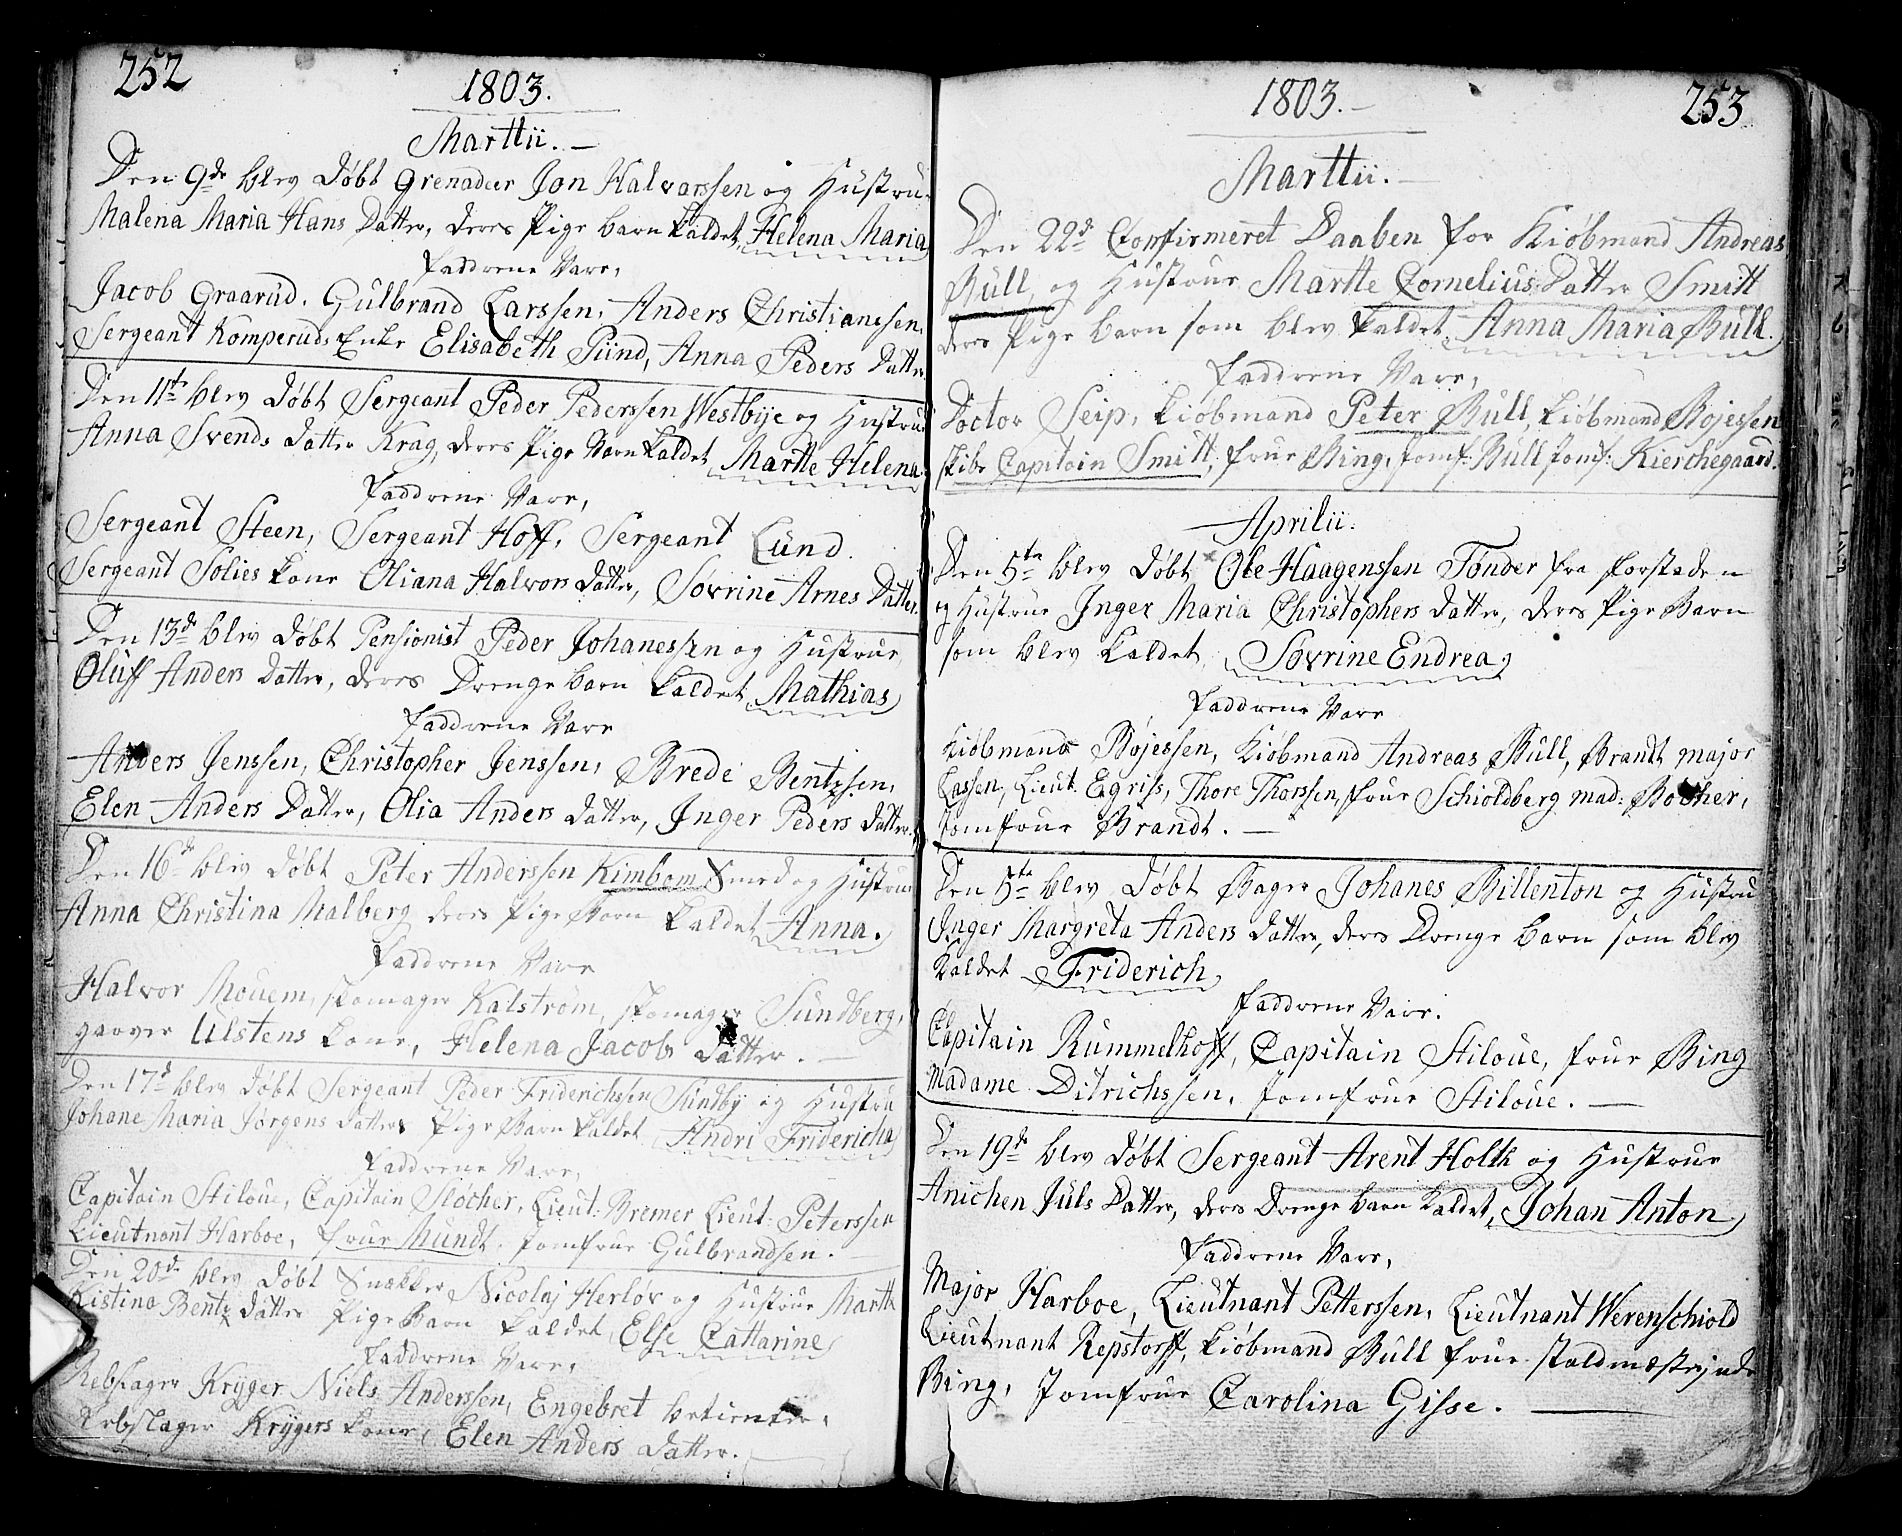 252
1803.
Marttii. —
Den 9de blev Døbt Grenadeer Jon Halvorssen og Hustrue
Malena Maria Hans Datter, deres Pige barn kaldet Helena Maria
Faddrene Vare,
Jacob Graarud, Gulbrand Larssen, Anders Christianssen,
Sergeant Komperuds Enke Elisabeth Pünd, Anna Peders Datter
Den 11te blev Døbt Sergeant Peder Pederssen Westbÿe og Hustrue
Anna Svends datter Krag, deres Pige Barn kaldet Martte Helena
Faddrene Vare,
Sergeant Steen, Sergeant Hoff, Sergeant Lund
Sergeant Solies kone Oliana Halvors datter, Søvrine Arnes Datter
Den 13de blev Døbt Pensionist Peder Johanessen og Hustrue
Oluff Anders datter, deres Drenge barn kaldet Mathias
Faddrene Vare
Anders Jenssen, Christopher Jenssen, Brede Bentzsen,
Elen Anders Datter, Olia Anders datter, Inger Peders datter
Den 16de blev Døbt Peter Anderssen Kimbom Smed og Hustrue
Anna Christina Malberg deres Pige Barn kaldet Anna.
Faddrene Vare
Halvor Mouem, skomager Kalstrøm, skomager Sundberg,
garver Ulstens kone, Helena Jacobs datter. —
Den 17de blev Døbt Sergeant Peder Friderichssen Sundby og Hustrue
Johane Maria Jørgens datters Pige Barn kaldet Andri Fridericha
Faddrene Vare,
Capitain Stiloue, Capitain Sløcher, Lieut: Bremer Lieut: Peterssen
Lieutnant Harboe, frue Mundt, Jomfrue Gulbrandsen. —
Den 20de blev Døbt Snækker Nicolaj Herløv og Hustrue Marthe
Kistina Bentz datter Pige Barn kaldet Else Cattarine
Faddrene Vare,
Rebslager Krÿger Niels Anderssen, Engebret betienter,
Rebslager Krÿgers kone, Elen Anders datter.
1803. —
253
Marttii. —
Den 22de Confirmeret Daaben for Kiøbmand Andreas
Bull, og Hustrue Martte Cornelius Datter Smitt
deres Pige barn som blev kaldet Anna Maria Bull.
Faddrene Vare,
Doctor Seip, kiøbmand Peter Bull, kiøbmand Bojessen
skibs Capitain Smitt, frue Bing, Jomf: Bull Jomf: Kierchegaard.
Aprilii.
Den 5te blev Døbt Ole Haagenssen Tønder fra forstaden
og Hustrue Inger Maria Christophers datter, deres Pige Barn
som blev kaldet Søvrine Endrea,
Faddrene Vare
Kiøbmand Bojessen, Kiøbmand Andreas Bull, Brandt major
Lassen, Lieut. Egriss, Thore Thorssen, frue Schioldberg mad: Bøcher,
Jomfrue Brandt. —
Den 5te blev Døbt Bager Johanes Billenton og Hustrue
Inger Margreta Anders datter, deres Drenge barn som blev
kaldet Friderich
Faddrene Vare.
Capitain Rummelhoff, Capitain Stiloue, frue Bing
Madame Ditrichssen, Jomfrue Stiloue. —
Den 19de blev Døbt Sergeant Arent Holth og Hustrue
Anichen Juls Datter, deres Drenge barn kaldet, Johan Anton
Faddrene Vare,
Major Harboe, Lieutnant Petterssen, Lieutnant Werenschiold
Lieutnant Repstorff, kiøbmand Bull frue staldmæstrinde
Bing, Jomfrue Carolina Gisse. —